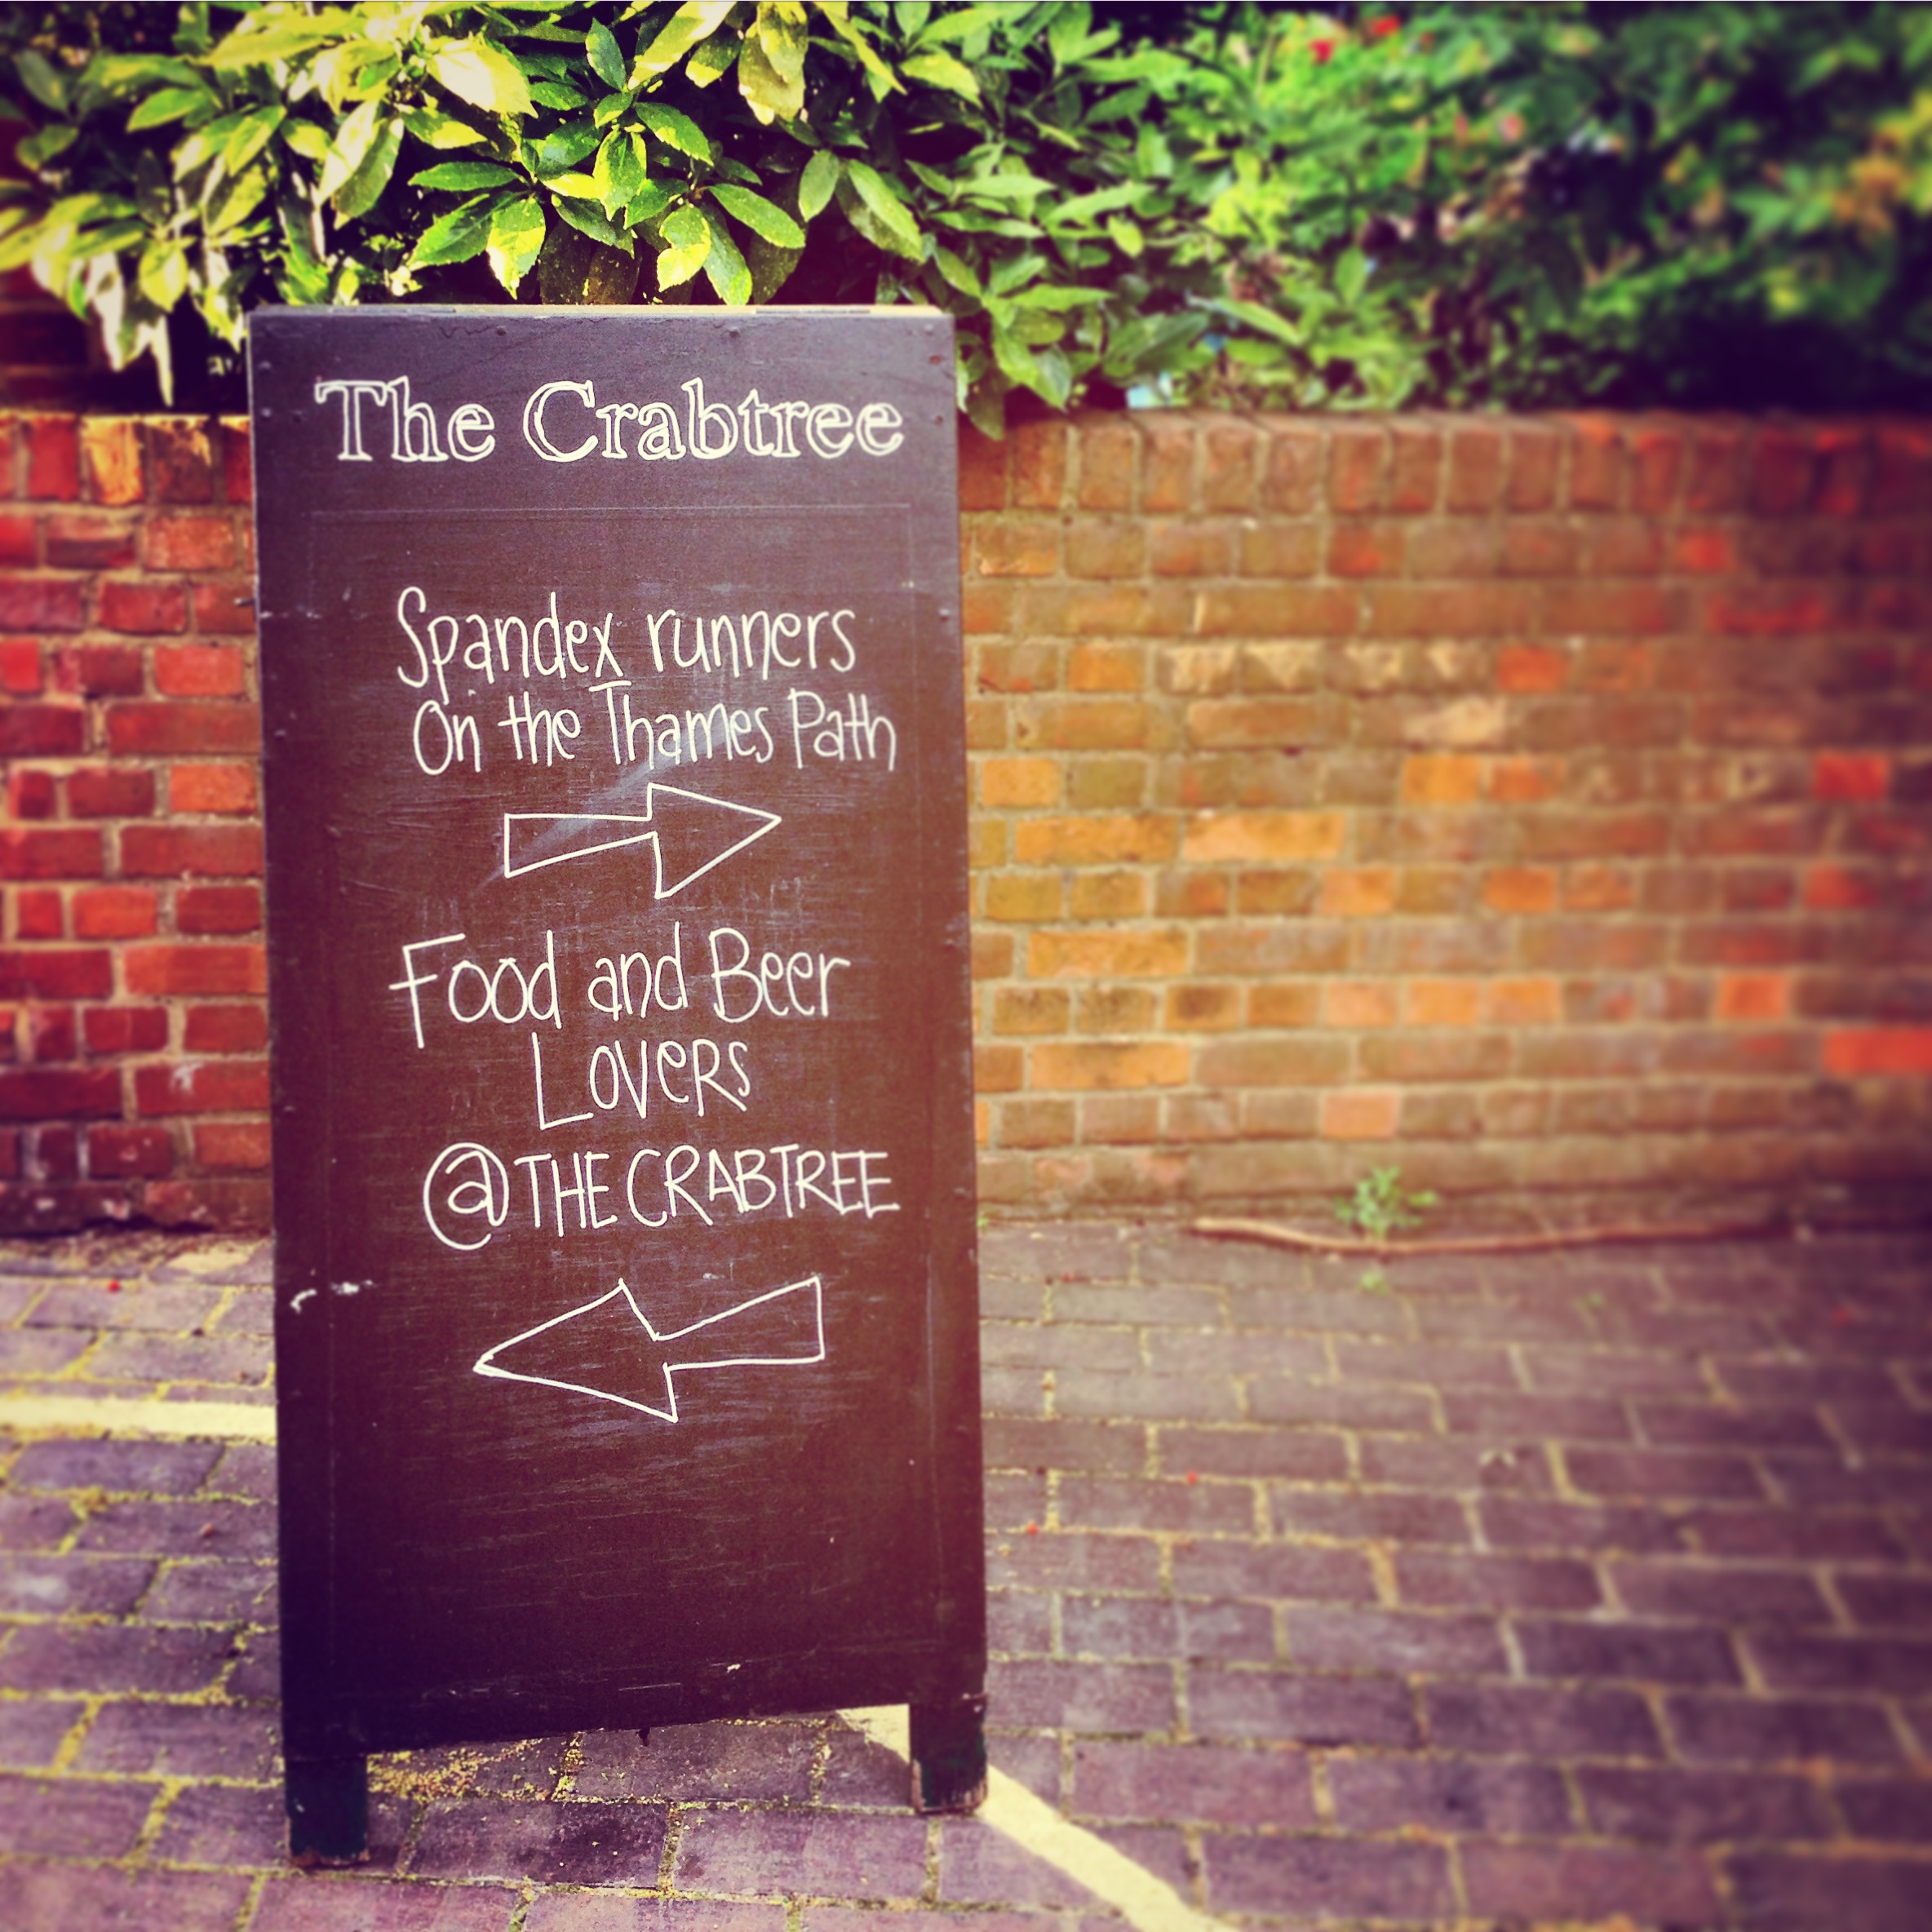 The Crabtree
Spandex runners
On the Thames Path
Food and Beer
Lovers
@THE CRABTREE